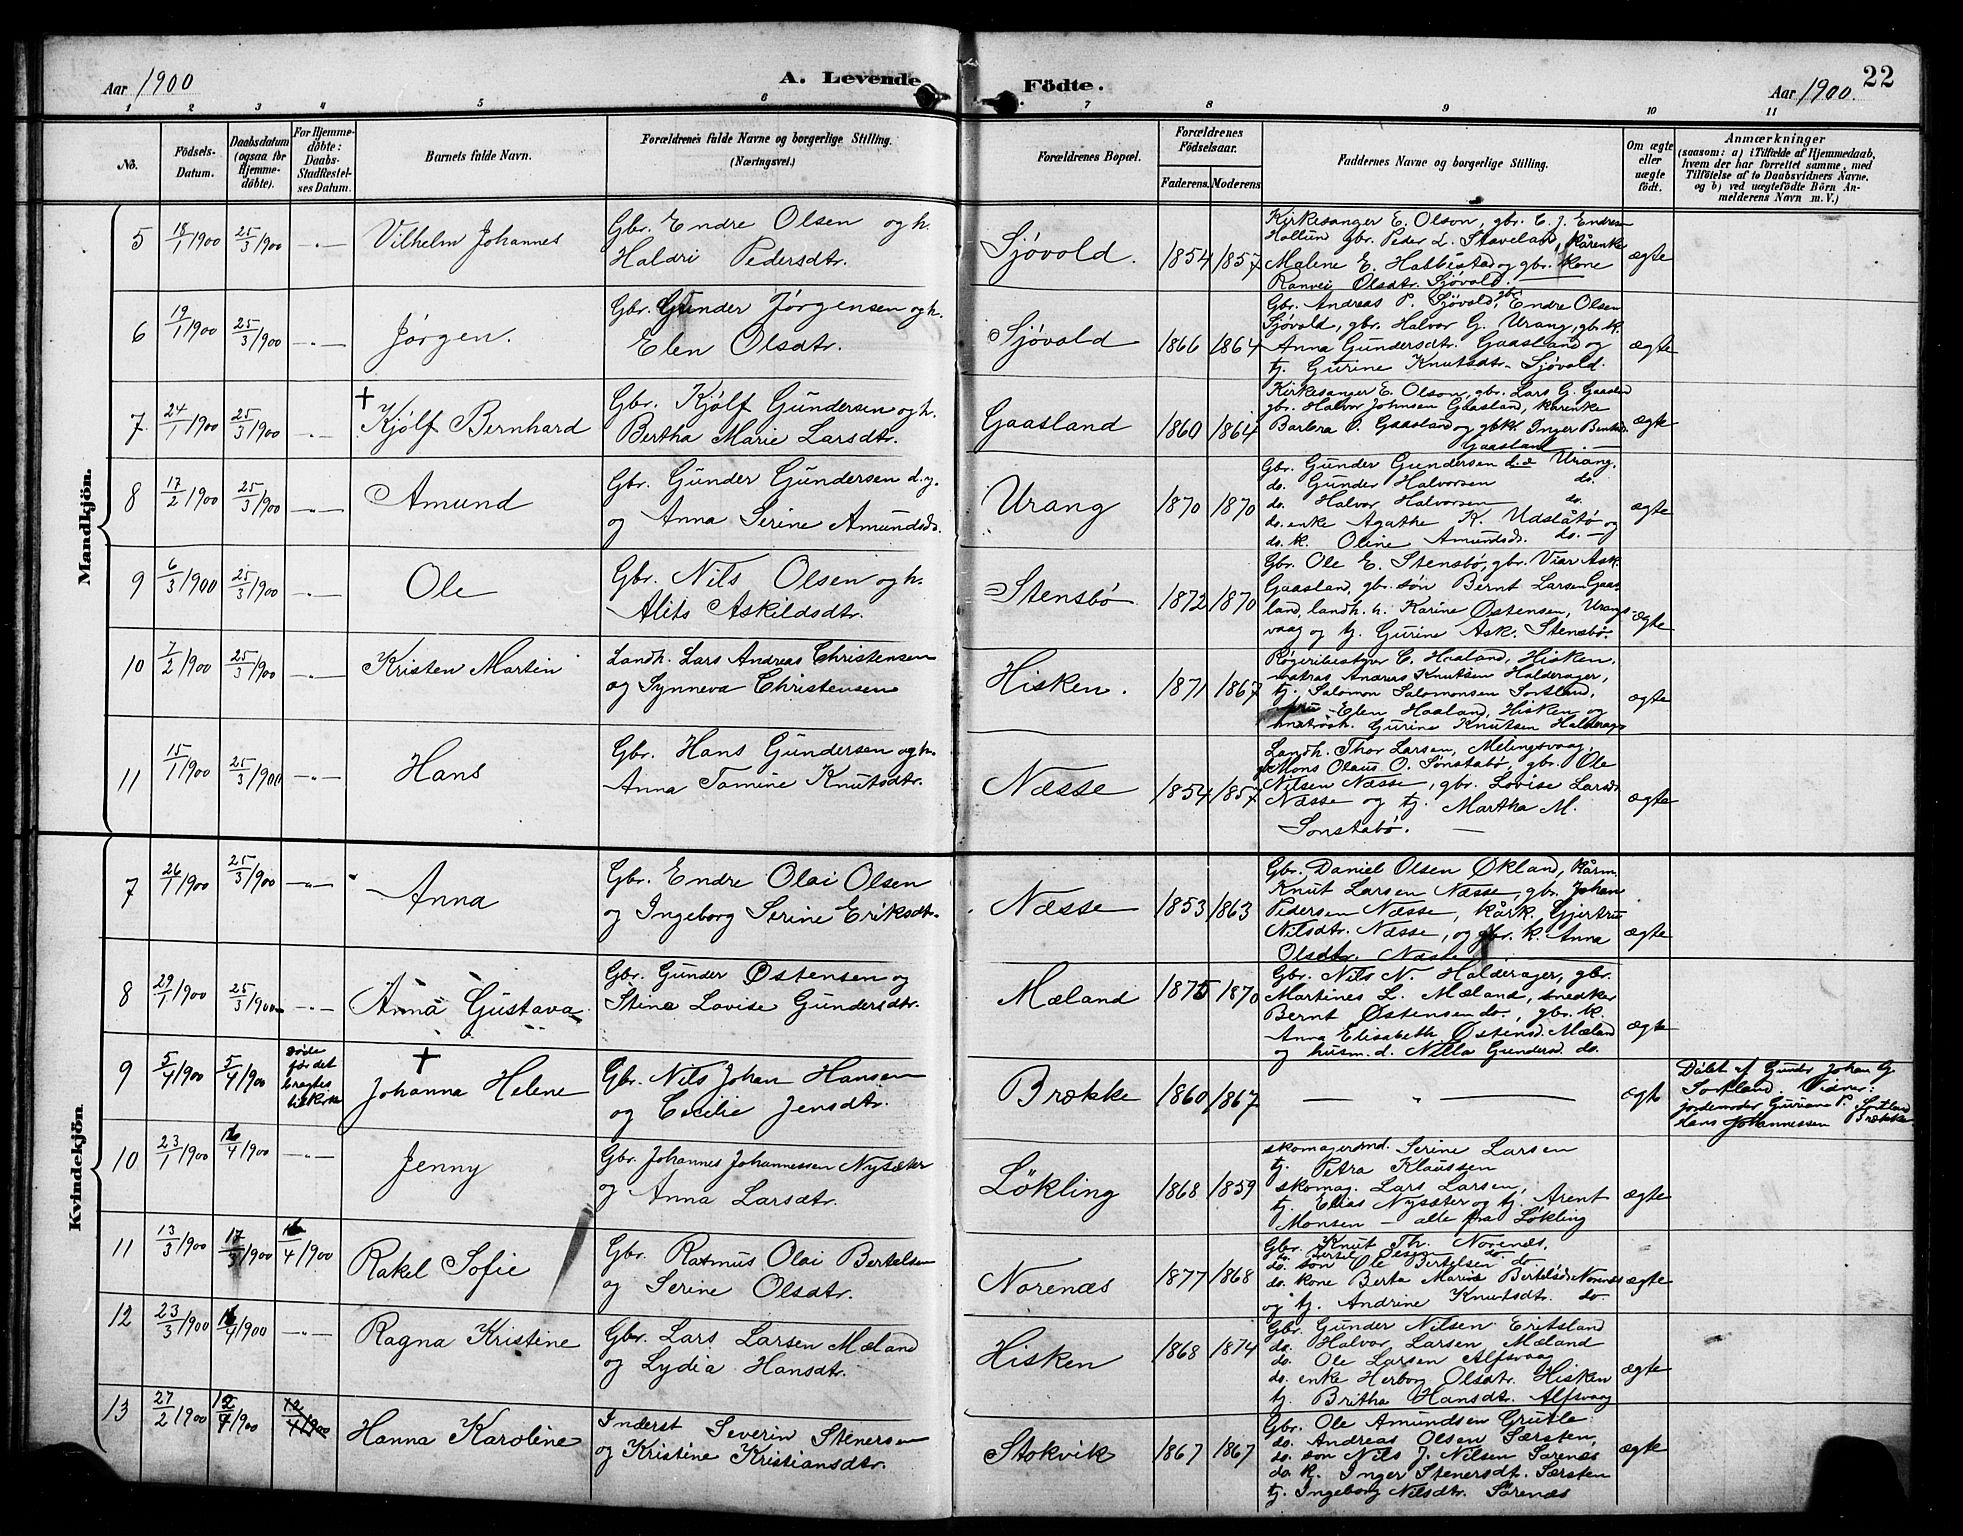 Aar 1900
A. Levende Födte.
Aar 1900.
22
1 2 3 4 5 6 7 8 9 10 11
No.
Födsels-Datum.
Daabsdatum (ogsaa for Hjemmedöbte).
For Hjemmedöbte: Daabs-Stadfæstelses Datum.
Barnets fulde Navn.
Forældrenes fulde Navne og borgerlige Stilling. (Næringsvei.)
Forældrenes Bopæl.
Forældrenes Födselsaar.
Faderens. Moderens
Faddernes Navne og borgerlige Stilling.
Om ægte eller uægte födt.
Anmærkninger
(saasom: a) i Tilfælde af Hjemmedaab, hvem der har forrettet samme, med Tilföielse af to Daabsvidners Navne, og b) ved uægtefödte Börn Anmelderens Navn m. V.)
Mandkjön.
5 18/1 1900 25/3 1900 -"- Vilhelm Johannes
Gbr. Endre Olsen og h.
Haldri Pedersdtr.
Sjøvold. 1854 1857
Kirkesanger E. Olson, gbr. E. J. Endresen
Hollund gbr. Peder L. Staveland, kårenke
Malene E. Habbestad og gbr. kone
Ranvei Olsdtr. Sjøvold.
ægte
6 19/1 1900 25/3 1900 -"- Jørgen.
Gbr. Gunder Jørgensen og h.
Elen Olsdtr.
Sjøvold 1866 1864
Gbr. Andreas P. Sjøvold, gbr. Endre Olsen
Sjøvold, gbr. Halvor G. Urang, gbr. k.
Anna Gundersdtr. Gaasland og
tj. Gurine Knutsdtr. Sjøvold.
ægte
7. 24/1 1900 25/3 1900 -"- † Kjølf Bernhard
Gbr. Kjølf Gundersen og h.
Bertha Marie Larsdtr.
Gaasland 1860 1864
Kirkesanger E. Olson, gbr. Lars G. Gaasland
gbr. Halvor Johnsen Gaasland, kårenke
Barbra O. Gaasland og gbk. Inger
Gaasland
ægte
8 17/2 1900 25/3 1900 -"- Amund
Gbr. Gunder Gundersen d.y.
og Anna Serine Amundsd.
Urang 1870 1870
Gbr. Gunder Gundersen d.e. Urang.
do. Gunder Halvorsen do.
do. Halvor Halvorsen do.
do. enke Agathe K. Udslåtø og
do. k. Oline Amundsd. do.
ægte
9 6/3 1900 25/3 1900 -"- Ole
Gbr. Nils Olsen og h.
Alits Askildsdtr.
Stensbø 1872 1870
Gbr. Ole E. Stensbø, gbr. Viar Ask.
Gaasland, gbr. søn Bernt Larsen Gaas-
land, landh. h. Karine Østensen, Urangs-
vaag og tj. Gurine Ask. Stensbø
ægte
10 7/2 1900 25/3 1900 -"- Kristen Martin
Landh. Lars Andreas Christensen
og Synneva Christensen
Hisken. 1871 1867
Røgeribestyrer C. Haaland, Hisken,
matros Andreas Knutsen Halderager,
tj. Salomon Salomonsen Sortland,
fru Elen Haaland, Hisken og
Gurine Knutsen Halderager
ægte
11 15/1 1900 25/3 1900 -"- Hans
Gbr. Hans Gundersen og h.
Anna Tomine Knutsdtr.
Næsse 1854 1857
Landh. Thor Larsen, Melingsvaag,
Mons Olaus O. Sønstabø, gbr. Ole
Nilsen Næsse, gbr. Lovise Larsd.
Næsse og tj. Martha M.
Sønstabø.
ægte
Kvindekjön.
7 26/1 1900 25/3 1900 -"- Anna
Gbr. Endre Olai Olsen
og Ingeborg Serine Eriksdtr.
Næsse 1853 1863
Gbr. Daniel Olsen Økland, kårm.
Knut Larsen Næsse, gbr. Johan
Pedersen Næsse, kårk. Gjertru
Nilsdtr. Næsse, og gbr. k. Anna
Olsdtr. Næsse
ægte
8 29/1 1900 25/3 1900 -"- Anna Gustava
Gbr. Gunder Østensen og
Stine Lovise Gundersdtr.
Mæland 1875 1870
Gbr. Nils N. Halderager, gbr.
Martines L. Mæland, snedker
Bernt Østensen do., gbr. k.
Anna Elisabeth Østensd. Mæland
og husm. d. Nilla Gundersd. do.
ægte
9 5/4 1900 5/4 1900 døde før det bragtes til kirke † Johanna Helene
Gbr. Nils Johan Hansen
og Cecilie Jensdtr.
Brække 1860 1867 — " — ægte
Døbt af Gunder Johan G
Sortland. Vidner:
jordemoder Guriane P. Sortland
Hans Johannessen Brække
10 23/1 1900 16/4 1900 -"- Jenny
Gbr. Johannes Johannessen Nysæter
og Anna Larsdtr.
Løkling 1868 1859
skomagersmd. Serine Larsen
tj. Petra Klaussen
skomag. Lars Larsen,
tj. Elias Nysæter og tj. Arent
Monsen — alle fra Løkling
ægte
11 13/3 1900 17/3 1900 16/4 1900 Rakel Sofie
Gbr. Rasmus Olai Bertelsen
og Serine Olsdtr.
Norenæs 1877 1868
Gbr. Knut Th. Norenæs,
do. søn Ole Bertelsen do
do. kone Berta Marie Bertelsd. Norenæs
og tj. Andrine Knutsdtr. do
ægte
12 23/3 1900 16/4 1900 -"- Ragna Kristine
Gbr. Lars Larsen Mæland
og Lydia Hansdtr.
Hisken 1868 1874
Gbr. Gunder Nilsen Eritsland
do. Halvor Larsen Mæland
do. Ole Larsen Alfsvaag
do. enke Herborg Olsdtr. Hisken
tj. Britha Hansdtr. Alfsvaag
ægte
13 27/2 1900 12/4 1900 12/4 1900 Hanna Karoline
Inderst Severin Stenersen
og Kristine Kristiansdtr.
Stokvik 1867 1867
Gbr. Ole Amundsen Grutle
do. Andreas Olsen Særsten,
do. søn Nils J. Nilsen Sørenæs
do k. Inger Stenersdt. Særsten
tj. Ingeborg Nilsdtr. Sørenæs
ægte